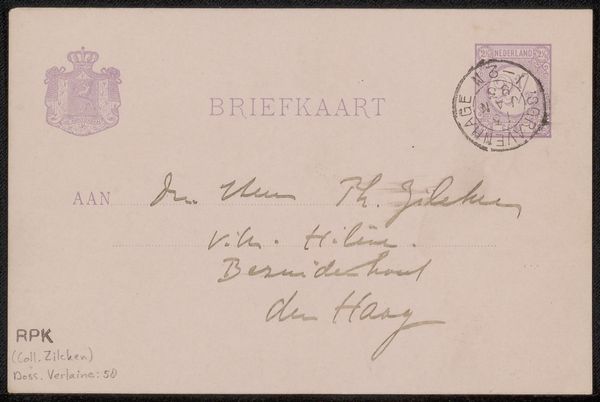 2½ NEDERLAND 2½
'SGRAVENHAGE
BRIEFKAART
AAN den Heer Th. Zilcken
Villa Hélène.
Bezuidenhout
den Haag
RPK
(Coll. Zilcken)
Doss. Verlaine: 58